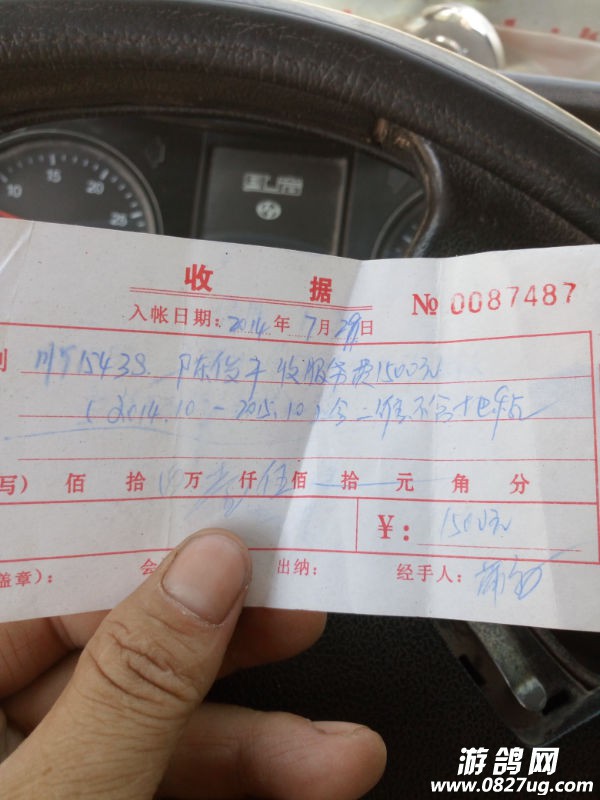 10 15 20 25
收 据
№ 0087487
入帐日期: 2014 年 7 月 29 日
川Y15438. 陈俊平 收服务费1500元
(2014.10-2015.10)含二维不含
写) 佰 拾 万 壹 仟 伍 佰 拾 元 角 分
¥: 1500元
盖章): 会 出纳: 经手人:
游鸽网
www.0827ug.com